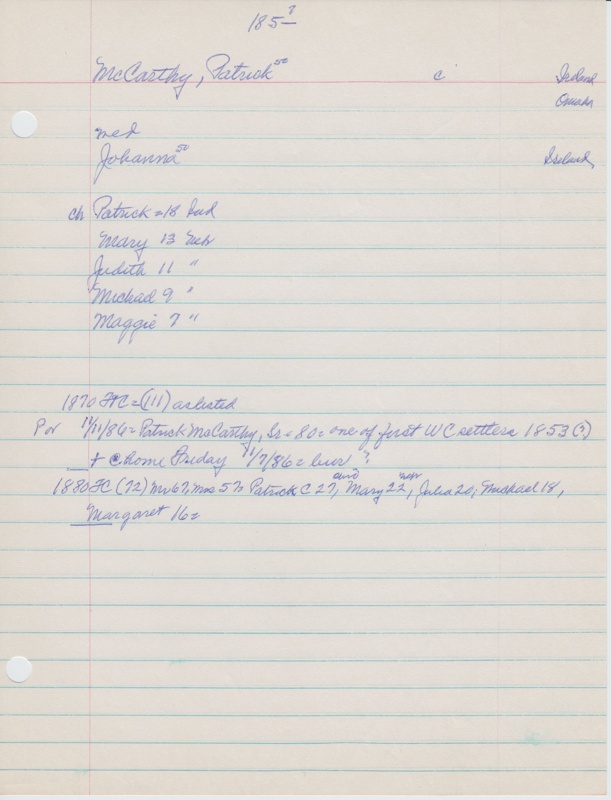 185-?
McCarthy, Patrick 50 c Ireland
Omaha
med
Johanna 50 Ireland
ch Patrick = 18 Ind
Mary 13 Neb
Judith 11 "
Michael 9 "
Maggie 7 "
1870 FC = (111) as listed
Por 11/11/86 = Patrick McCarthy, Sr = 80 = one of first WC settlers 1853 (?)
+ @ home Friday 11/7/86 = bur ?
1880 FC (72) Mr 67, Mrs 57 Patrick C 27 ind, Mary 22 neb, Julia 20, Michael 18,
Margaret 16 =